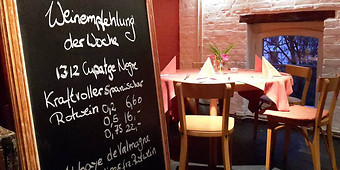 Weinempfehlung
der Woche
1312 Cupatge Negre
Kraftvoller spanischer
Rotwein 0,2 6,60
0,5 16,-
0,75 22,-
Abbaye de Valmagne
frz. Rotwein